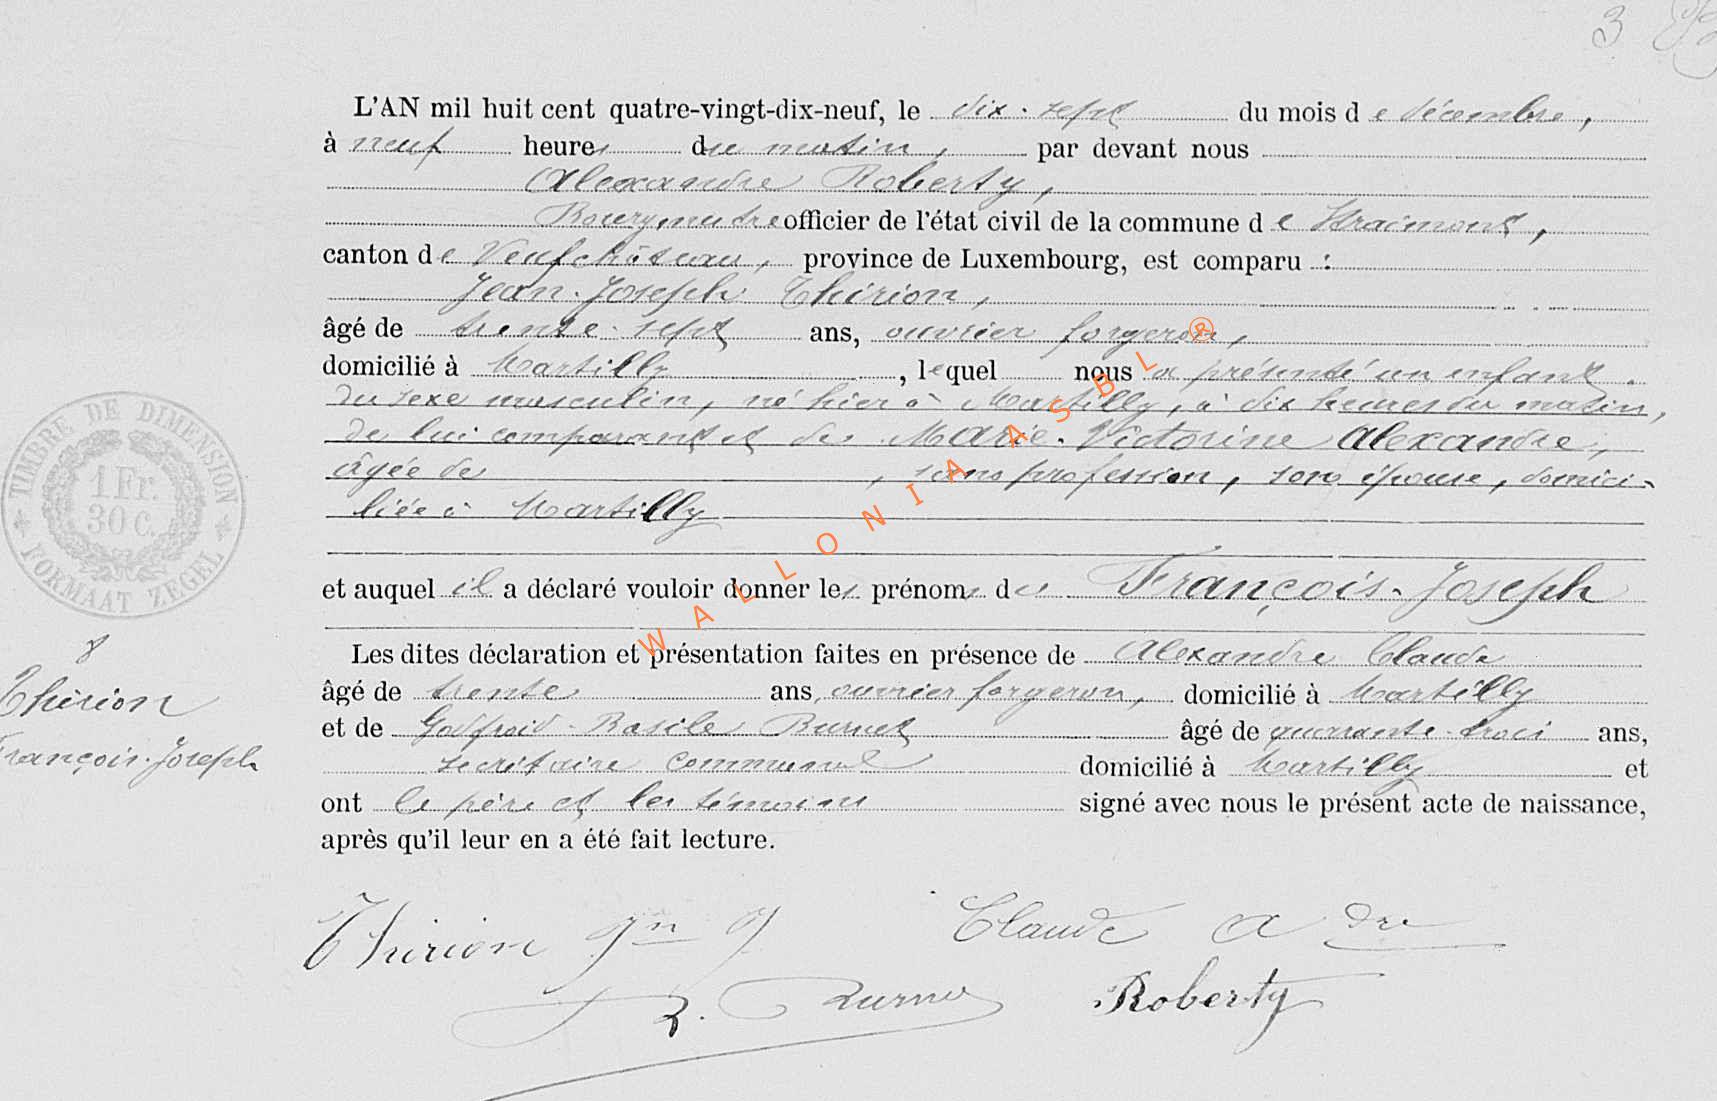 3
L'AN mil huit cent quatre-vingt-dix-neuf, le dix-sept du mois de décembre,
à neuf heures du matin, par devant nous
Alexandre Roberty,
Bourgmestre officier de l'état civil de la commune de Straimont,
canton de Neufchâteau, province de Luxembourg, est comparu :
Jean-Joseph Thirion,
âgé de trente-sept ans, ouvrier forgeron,
domicilié à Martilly, lequel nous a présenté un enfant
du sexe masculin, né hier à Martilly, à dix heures du matin,
de lui comparant et de Marie-Victorine Alexandre,
âgée de , sans profession, son épouse, domici-
liée à Martilly
et auquel il a déclaré vouloir donner les prénoms de François-Joseph
Les dites déclaration et présentation faites en présence de Alexandre Claude
âgé de trente ans, ouvrier forgeron, domicilié à Martilly
et de Godfroid-Basile Burnet âgé de quarante-trois ans,
secrétaire communal domicilié à Martilly et
ont le père et les témoins signé avec nous le présent acte de naissance,
après qu'il leur en a été fait lecture.
TIMBRE DE DIMENSION
1 Fr.
30 C.
FORMAAT ZEGEL
8
Thirion
François-Joseph
Thirion Jn J
Claude A dre
B. Burnet
Roberty
WALLONIA ASBL ®